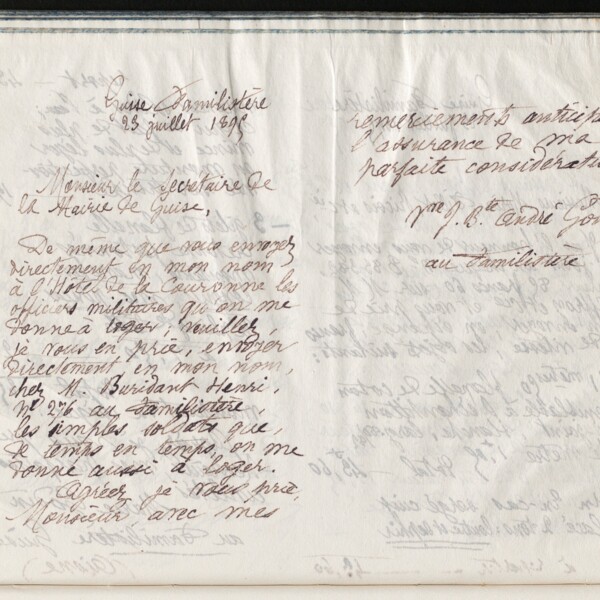 Guise Familistère
23 juillet 1895
Monsieur le Secrétaire de
la Mairie de Guise,
De même que vous envoyez
directement en mon nom
à l'Hôtel de la Couronne les
officiers militaires qu'on me
donne à loger, veuillez,
je vous en prie, envoyer
directement en mon nom,
chez M. Buridant Henri,
nº 276 au Familistère,
les simples soldats que,
de temps en temps, on me
donne aussi à loger.
Agréez, je vous prie,
Monsieur, avec mes
remerciements anticip
l'assurance de ma
parfaite considérat
Vve J. Bte André Go
au Familistère